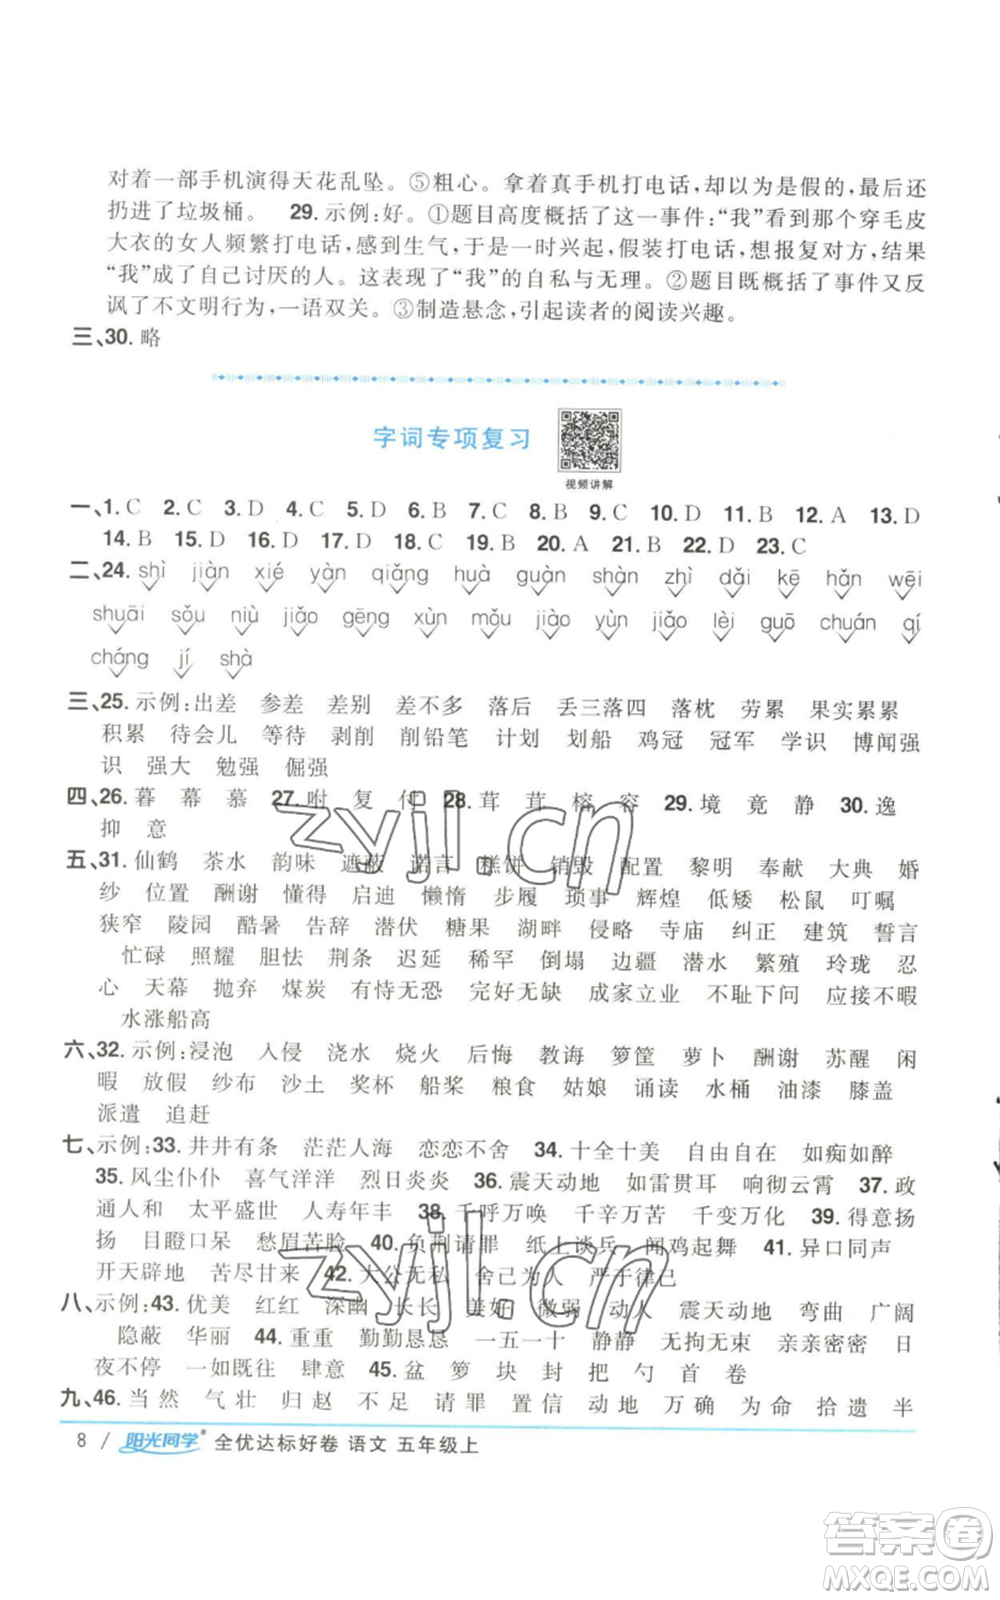 对着一部手机演得天花乱坠。⑤粗心。拿着真手机打电话，却以为是假的，最后还
扔进了垃圾桶。 29. 示例：好。①题目高度概括了这一事件：“我”看到那个穿毛皮
大衣的女人频繁打电话，感到生气，于是一时兴起，假装打电话，想报复对方，结果
“我”成了自己讨厌的人。这表现了“我”的自私与无理。②题目既概括了事件又反
讽了不文明行为，一语双关。③制造悬念，引起读者的阅读兴趣。
三、30. 略
字词专项复习
视频讲解
一、1. C 2. C 3. D 4. D 5. D 6. B 7. C 8. B 9. C 10. D 11. B 12. A 13. D
14. B 15. D 16. D 17. D 18. C 19. B 20. A 21. B 22. D 23. C
二、24. shì jiàn xié yàn qiǎng huà guàn shàn zhì dǎi kē hǎn wēi
shuāi sǒu niù jiǎo gēng xùn mǒu jiào yùn jiǎo lèi guō chuán qí
cháng jí shà
三、25. 示例：出差 参差 差别 差不多 落后 丢三落四 落枕 劳累 果实累累
积累 待会儿 等待 剥削 削铅笔 计划 划船 鸡冠 冠军 学识 博闻强
识 强大 勉强 倔强
四、26. 暮 幕 慕 27. 咐 复 付 28. 茸 茸 榕 容 29. 境 竟 静 30. 逸
抑 意
五、31. 仙鹤 茶水 韵味 遮蔽 诺言 糕饼 销毁 配置 黎明 奉献 大典 婚
纱 位置 酬谢 懂得 启迪 懒惰 步履 琐事 辉煌 低矮 松鼠 叮嘱
狭窄 陵园 酷暑 告辞 潜伏 糖果 湖畔 侵略 寺庙 纠正 建筑 誓言
忙碌 照耀 胆怯 荆条 迟延 稀罕 倒塌 边疆 潜水 繁殖 玲珑 忍
心 天幕 抛弃 煤炭 有恃无恐 完好无缺 成家立业 不耻下问 应接不暇
水涨船高
六、32. 示例：浸泡 入侵 浇水 烧火 后悔 教诲 箩筐 萝卜 酬谢 苏醒 闲
暇 放假 纱布 沙土 奖杯 船桨 粮食 姑娘 诵读 水桶 油漆 膝盖
派遣 追赶
七、示例：33. 井井有条 茫茫人海 恋恋不舍 34. 十全十美 自由自在 如痴如醉
35. 风尘仆仆 喜气洋洋 烈日炎炎 36. 震天动地 如雷贯耳 响彻云霄 37. 政
通人和 太平盛世 人寿年丰 38. 千呼万唤 千辛万苦 千变万化 39. 得意扬
扬 目瞪口呆 愁眉苦脸 40. 负荆请罪 纸上谈兵 闻鸡起舞 41. 异口同声
开天辟地 苦尽甘来 42. 大公无私 舍己为人 严于律己
八、示例：43. 优美 红红 深幽 长长 美好 微弱 动人 震天动地 弯曲 广阔
隐蔽 华丽 44. 重重 勤勤恳恳 一五一十 静静 无拘无束 亲亲密密 日
夜不停 一如既往 肆意 45. 盆 箩 块 封 把 勺 首 卷
九、46. 当然 气壮 归赵 不足 请罪 置信 动地 万确 为命 拾遗 半
8 / 阳光同学® 全优达标好卷 语文 五年级上
zyjl.cn
zyjl.cn
答案卷
MXQE.COM